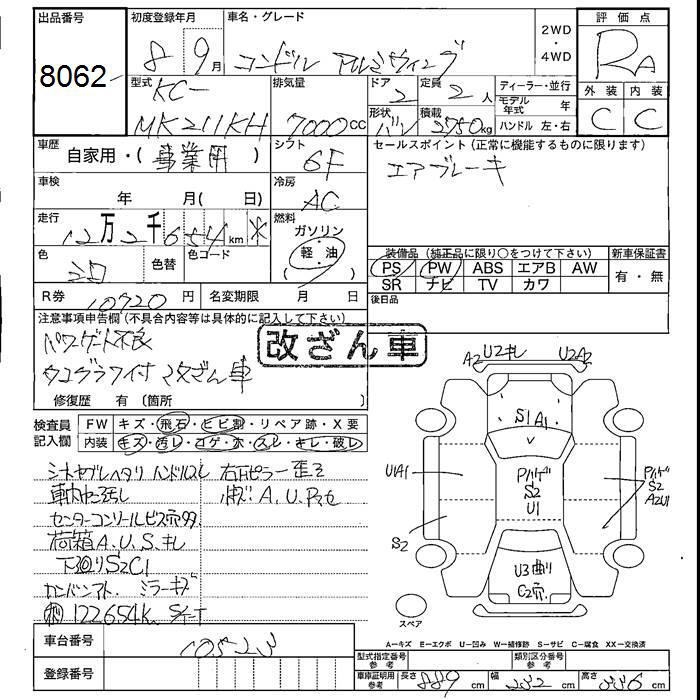 出品番号
8062
初度登録年月
8 9月
車名・グレード
コンドル アルミウィング
2WD
・
4WD
評価点
RA
外装 内装
C C
型式
KC-
MK211KH
排気量
7000cc
ドア 2 定員 2人
形状 バン 積載 2750kg
ディーラー・並行
モデル年式 年
ハンドル 左・右
車歴
自家用・(事業用)
シフト
6F
セールスポイント(正常に機能するものに限ります)
エアブレーキ
車検
年 月(日)
冷房
AC
走行
12万2千654km *
燃料
ガソリン
軽・油
装備品(純正品に限り○をつけて下さい)
PS PW ABS エアB AW
SR ナビ TV カワ
新車保証書
有・無
色
色替
色コード
R券 10720円
名変期限 月 日
後日品
注意事項申告欄(不具合内容等は具体的に記入して下さい)
パワーゲート不良
改ざん車
タコグラフ付 改ざん車
修復歴 有(箇所 )
検査員記入欄
FW キズ・飛石・ヒビ割・リペア跡・X要
内装 キズ・汚レ・コゲ・穴・スレ・キレ・破レ
車内中汚レ
荷箱A.U.S.キレ
下回りS2C1
ミラーキズ
122654K
A2 U2キレ U2A2
S1A1
U1A1
S2
S2
U1
S2
A2U1
U3曲り
C2穴
スペア
A-キズ E-エクボ U-凹み W-補修跡 S-サビ C-腐食 XX-交換済
車台番号
10523
登録番号
型式指定番号 参考
類別区分番号 参考
車庫証明用 参考
長さ 889cm 幅 232cm 高さ 336cm